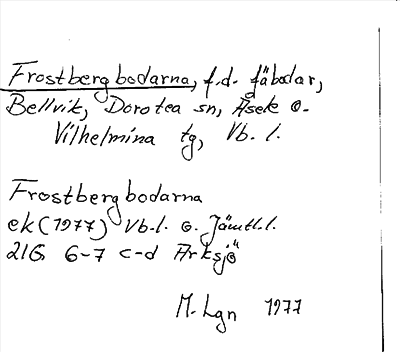 Frostbergbodarna, f.d. fäbodar,
Bellvik, Dorotea sn, Åsele o.
Vilhelmina tg, Vb. l.
Frostbergbodarna
ek (1977) Vb.l. o. Jämtl.l.
21G 6-7 c-d Arksjö
M. Lgn 1977